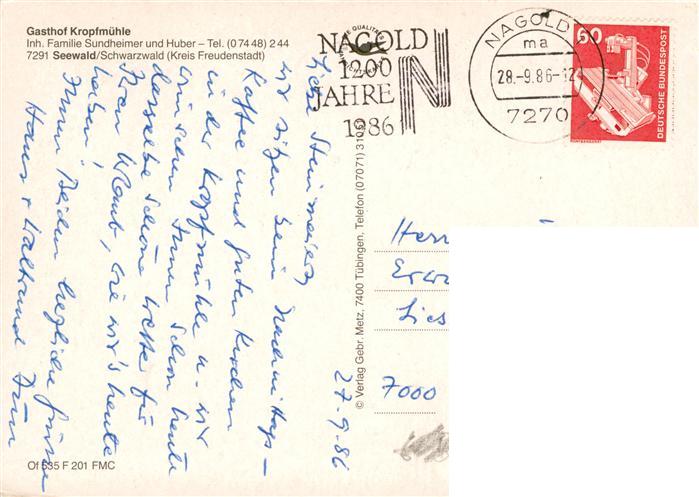 Gasthof Kropfmühle
Inh. Familie Sundheimer und Huber – Tel. (0 74 48) 2 44
7291 Seewald/Schwarzwald (Kreis Freudenstadt)
NAGOLD
1200
JAHRE
1986
NAGOLD
ma
28.-9.86-12
7270
60
DEUTSCHE BUNDESPOST
27.9.86
Liebe
wir sitzen beim Nachmittags-
Kaffee und guten Kuchen
in der Kropfmühle u. wir
wünschen Ihnen schon heute
dasselbe schöne Wetter für
Ihren Urlaub, wie wir's heute
haben!
Ihnen Beiden herzliche Grüsse
Hans + Waltraud
© Verlag Gebr. Metz, 7400 Tübingen, Telefon (07071) 31
Herr
Erw
Lies
7000
Of 535 F 201 FMC